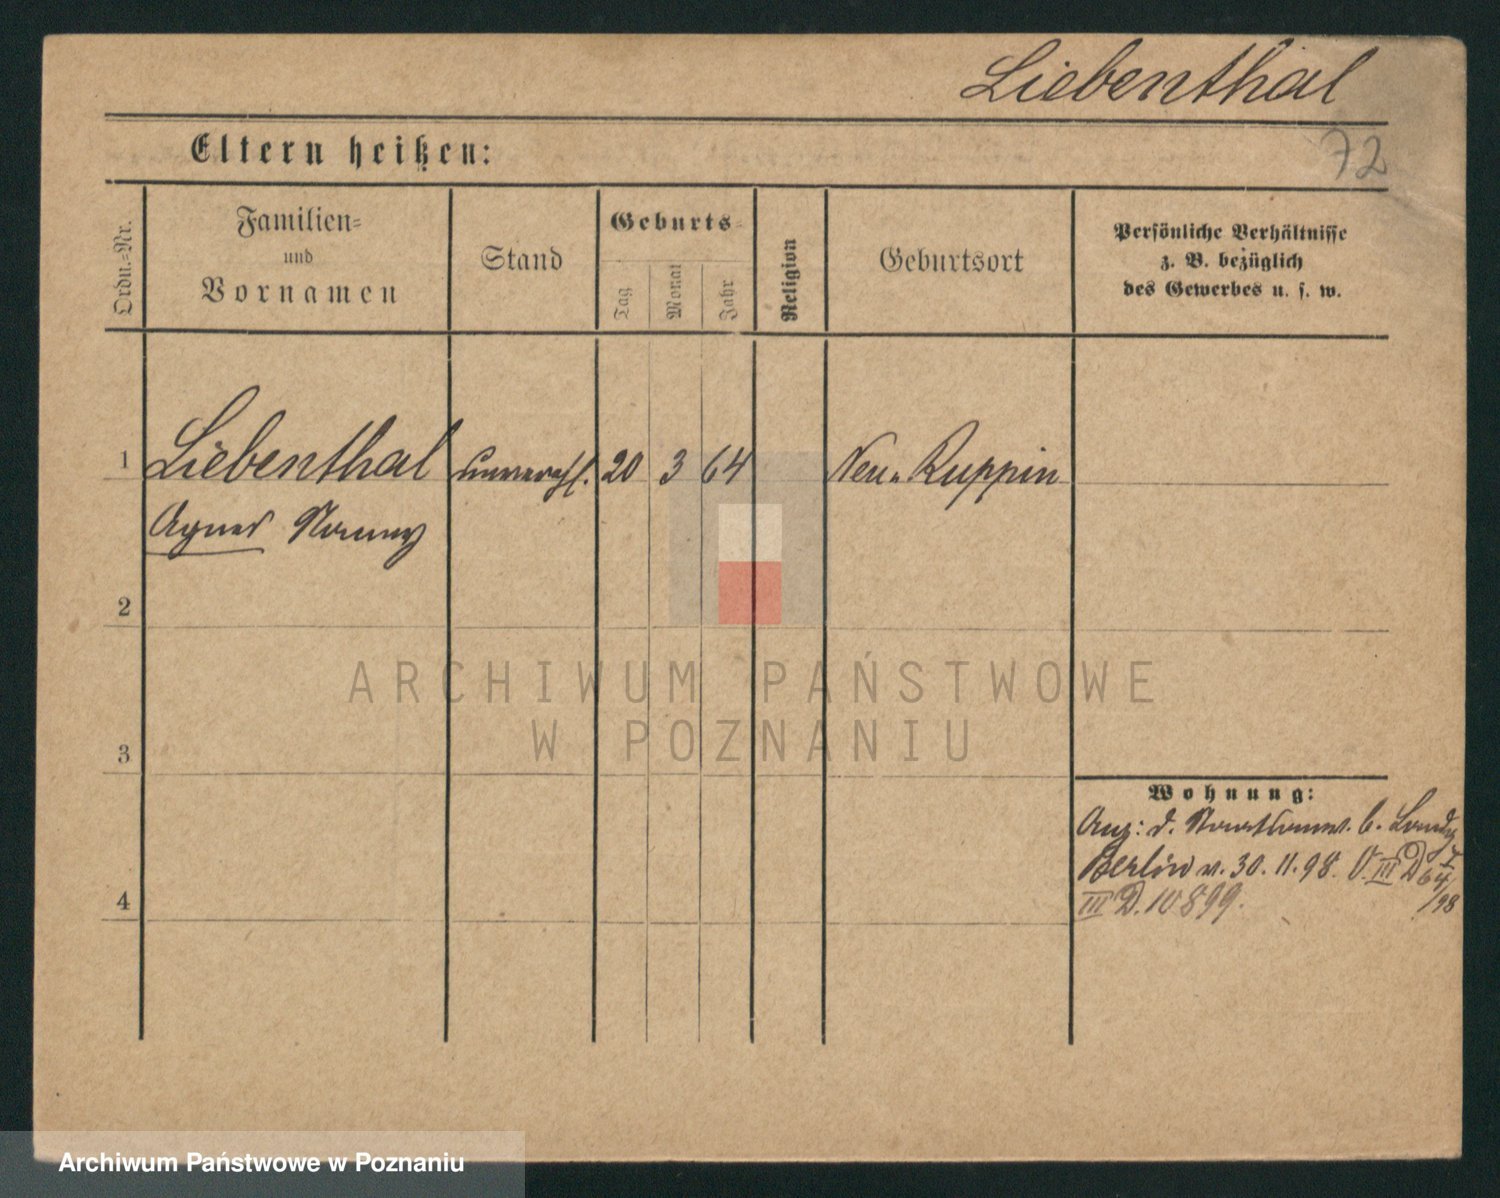 Liebenthal
72
Eltern heißen:
Ordn.=Nr.
Familien=
und
Vornamen
Stand
Geburts=
Tag
Monat
Jahr
Religion
Geburtsort
Persönliche Verhältnisse
z. B. bezüglich
des Gewerbes u. s. w.
1 Liebenthal unverehl. 20 3 64 Neu-Ruppin
Agnes Nanny
2
3
4
Wohnung:
Ang: d.
Berlin v. 30. 11. 98.
III D. 10899.
/98
ARCHIWUM PAŃSTWOWE
W POZNANIU
Archiwum Państwowe w Poznaniu